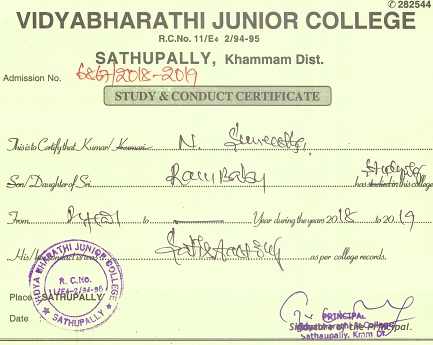 ✆ 282544
VIDYABHARATHI JUNIOR COLLEGE
R.C.No. 11/E4 2/94-95
SATHUPALLY, Khammam Dist.
Admission No. 6867/2018-2019
STUDY & CONDUCT CERTIFICATE
This is to Certify that Kumar/Kumari N.
Son/Daughter of Sri Ram Baby has studied in this college
From to Year during the years 2018 to 2019
His/ conduct is was Satisfactory as per college records.
VIDYA BHARATHI JUNIOR COLLEGE
R. C.No.
11/E4-2/94-95
★ SATHUPALLY ★
Place : SATHUPALLY
Date :
PRINCIPAL
Signature of the Principal.
Vidyabharathi Jr. College
Sathaupally, Kmm Dt.